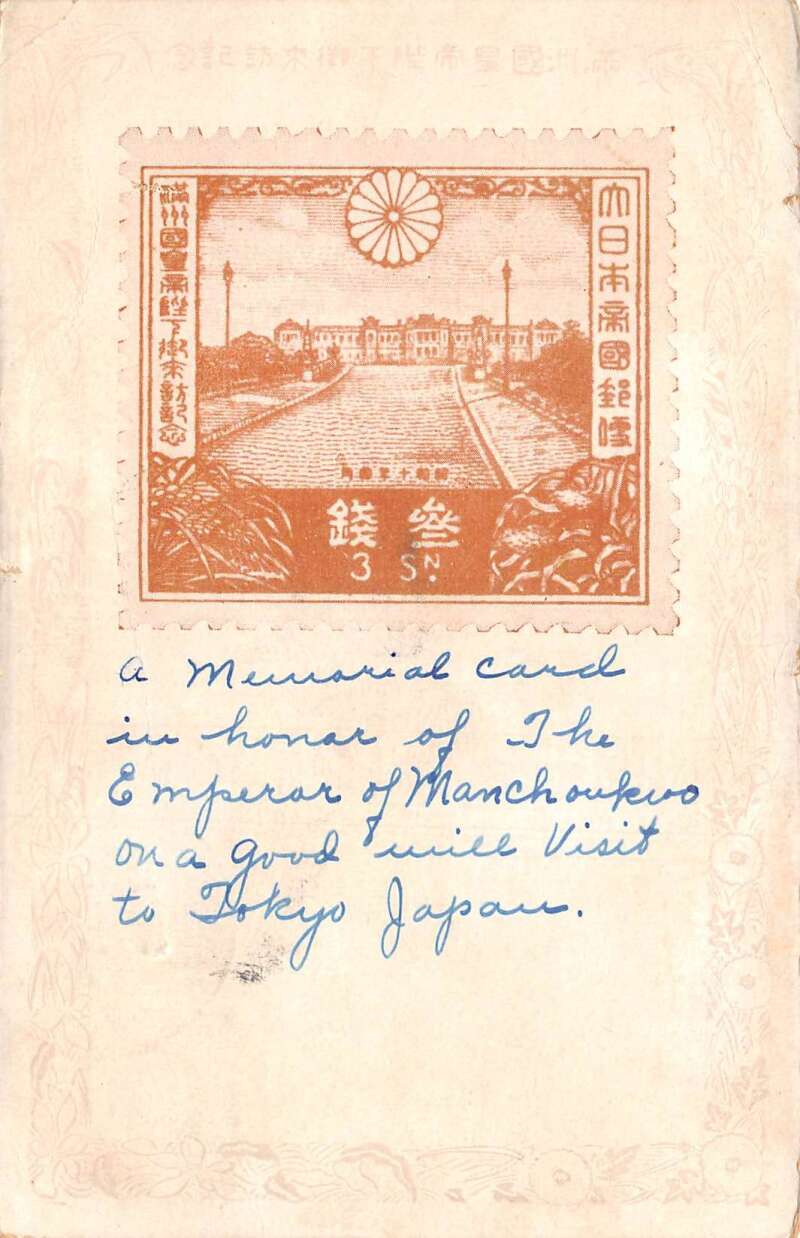 滿洲國皇帝陛下御來訪記念
大日本帝國郵便
滿洲國皇帝陛下御來訪記念
昭和十年四月
參錢
3 SN.
a Memorial card
in honor of The
Emperor of Manchoukuo
on a good will Visit
to Tokyo Japan.